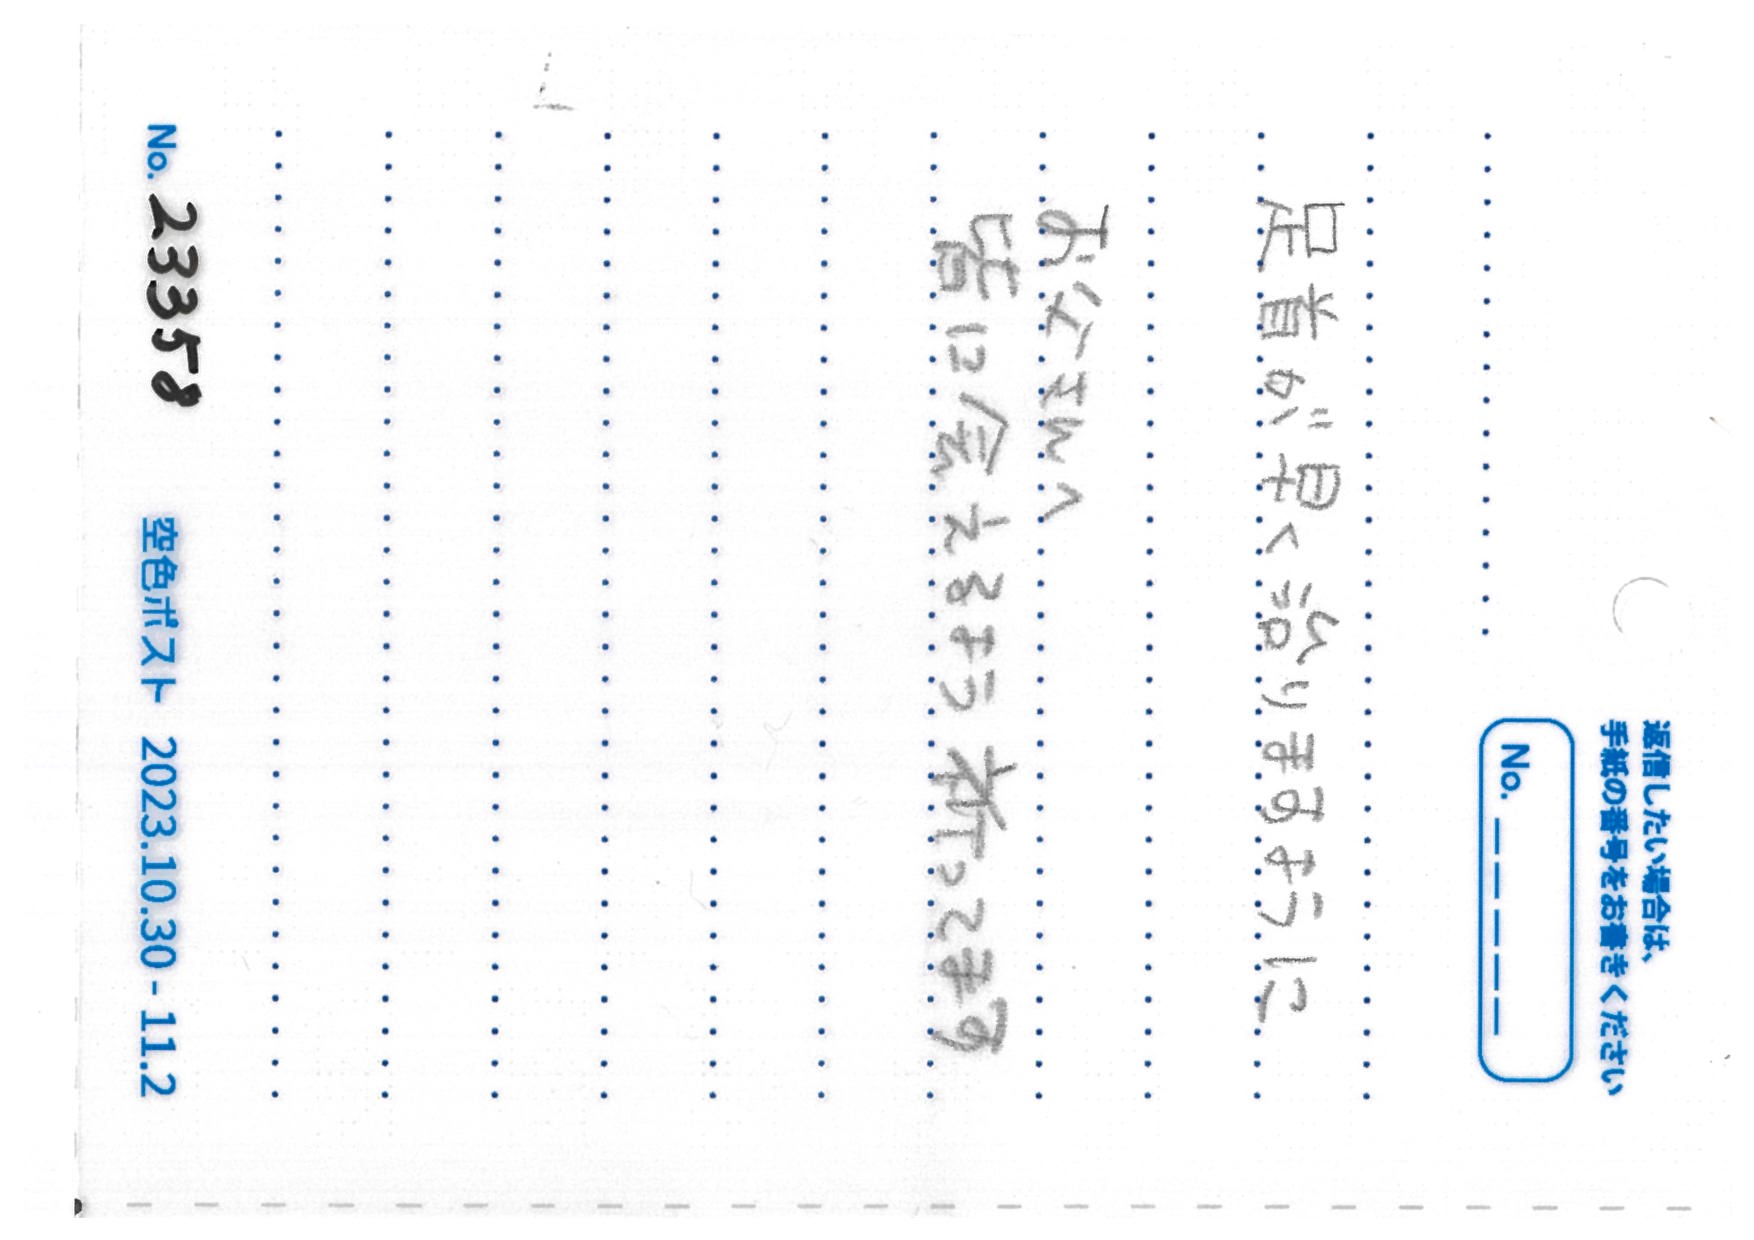 返信したい場合は、
手紙の番号をお書きください
No. _ _ _ _ _
足首が早く治りますように
お父さんへ
皆に会えるよう祈ってます
No. 23358
空色ポスト 2023.10.30 - 11.2